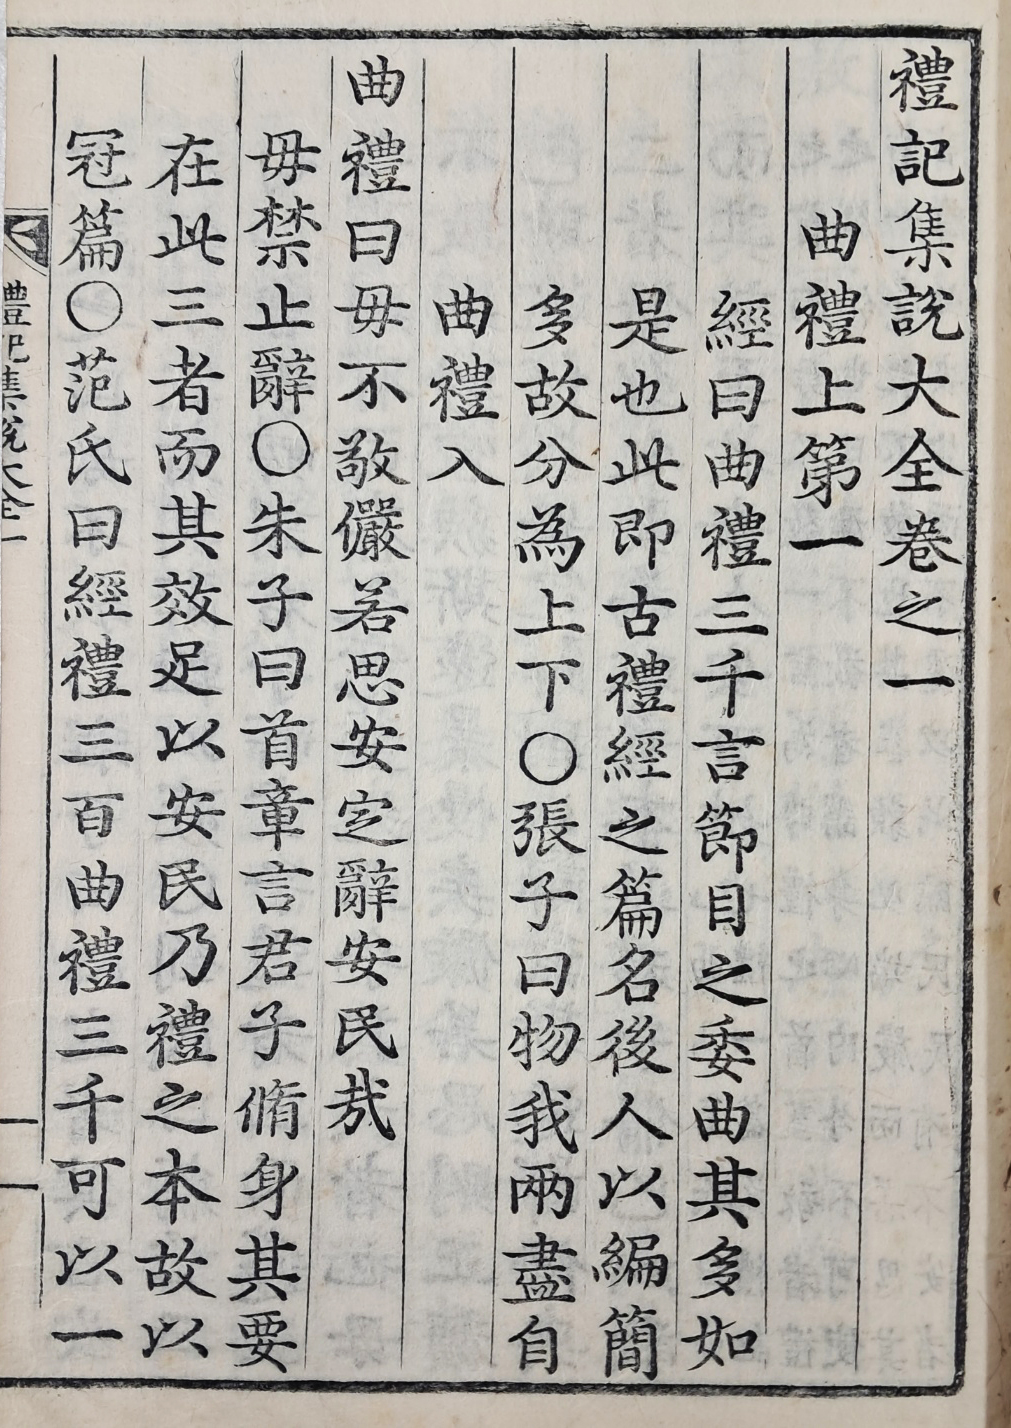 禮記集說大全卷之一
曲禮上第一
經曰曲禮三千言節目之委曲其多如
是也此即古禮經之篇名後人以編簡
多故分為上下〇張子曰物我兩盡自
曲禮入
曲禮曰毋不敬儼若思安定辭安民哉
毋禁止辭〇朱子曰首章言君子脩身其要
在此三者而其效足以安民乃禮之本故以
冠篇〇范氏曰經禮三百曲禮三千可以一
禮記集說大全一